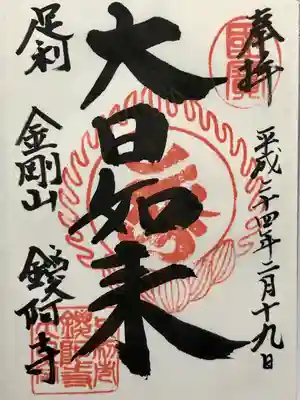 奉拝
平成二十四年二月十九日
大日如来
足利
金剛山
鑁阿寺